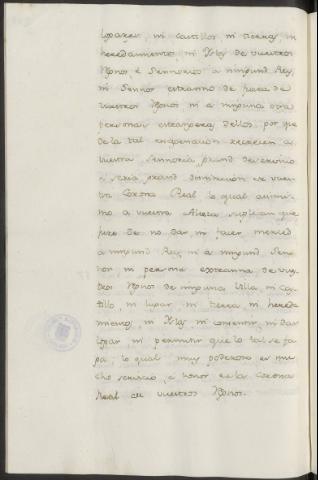 lugares, ni castillos ni tierras, ni
heredamientos, ni Yslas de vuestros
Rynos é Sennorios a ningund Rey,
ni Sennor estranno de fuera de
vuestros Rynos ni a ninguna otra
personas estrangeras dellos, por que
de la tal enagenacion recrecen a
vuestra sennoria grand deservicio
i seria grand diminucion de vues
tra Corona Real lo qual asimis
mo a vuestra Alteza suplican que
jure de no dar ni facer merced
a ningund Rey ni a ningund Sen
nor, ni persona extranna de vues
tros Rynos de ninguna Villa, ni cas
tillo, ni lugar, ni tierra, ni hereda
miento, ni Yslas, ni consentir, ni dar
lugar, ni permitir que lo tal se fa
ga; lo qual, muy poderoso es mu
cho servicio, e honor de la Corona
Real de vuestros Rynos.